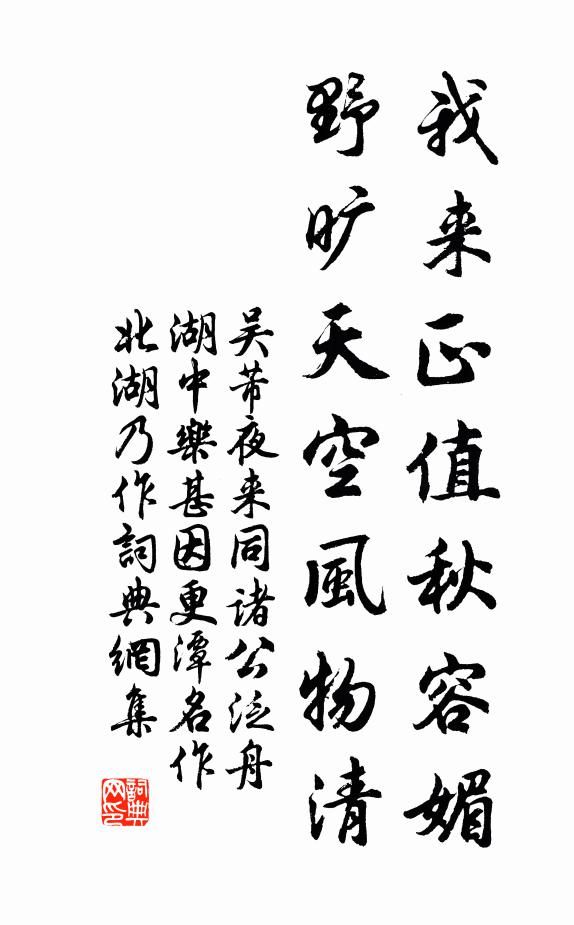 我来正值秋容媚
野旷天空風物清
吴芾夜来同诸公泛舟
湖中樂甚因更潭名作
北湖乃作詞典網集
詞典网印